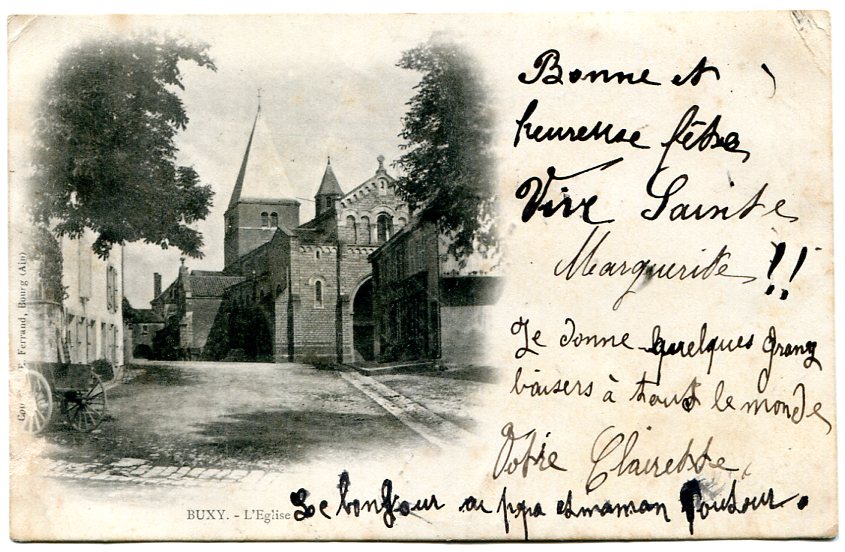 Bonne et
heureuse fête
Vive Sainte
Marguerite !!
Je donne quelques grang
baisers à tout le monde
Votre Clairette
Le bonjour au papa et maman
BUXY. - L'Eglise
F. Ferrand, Bourg (Ain)